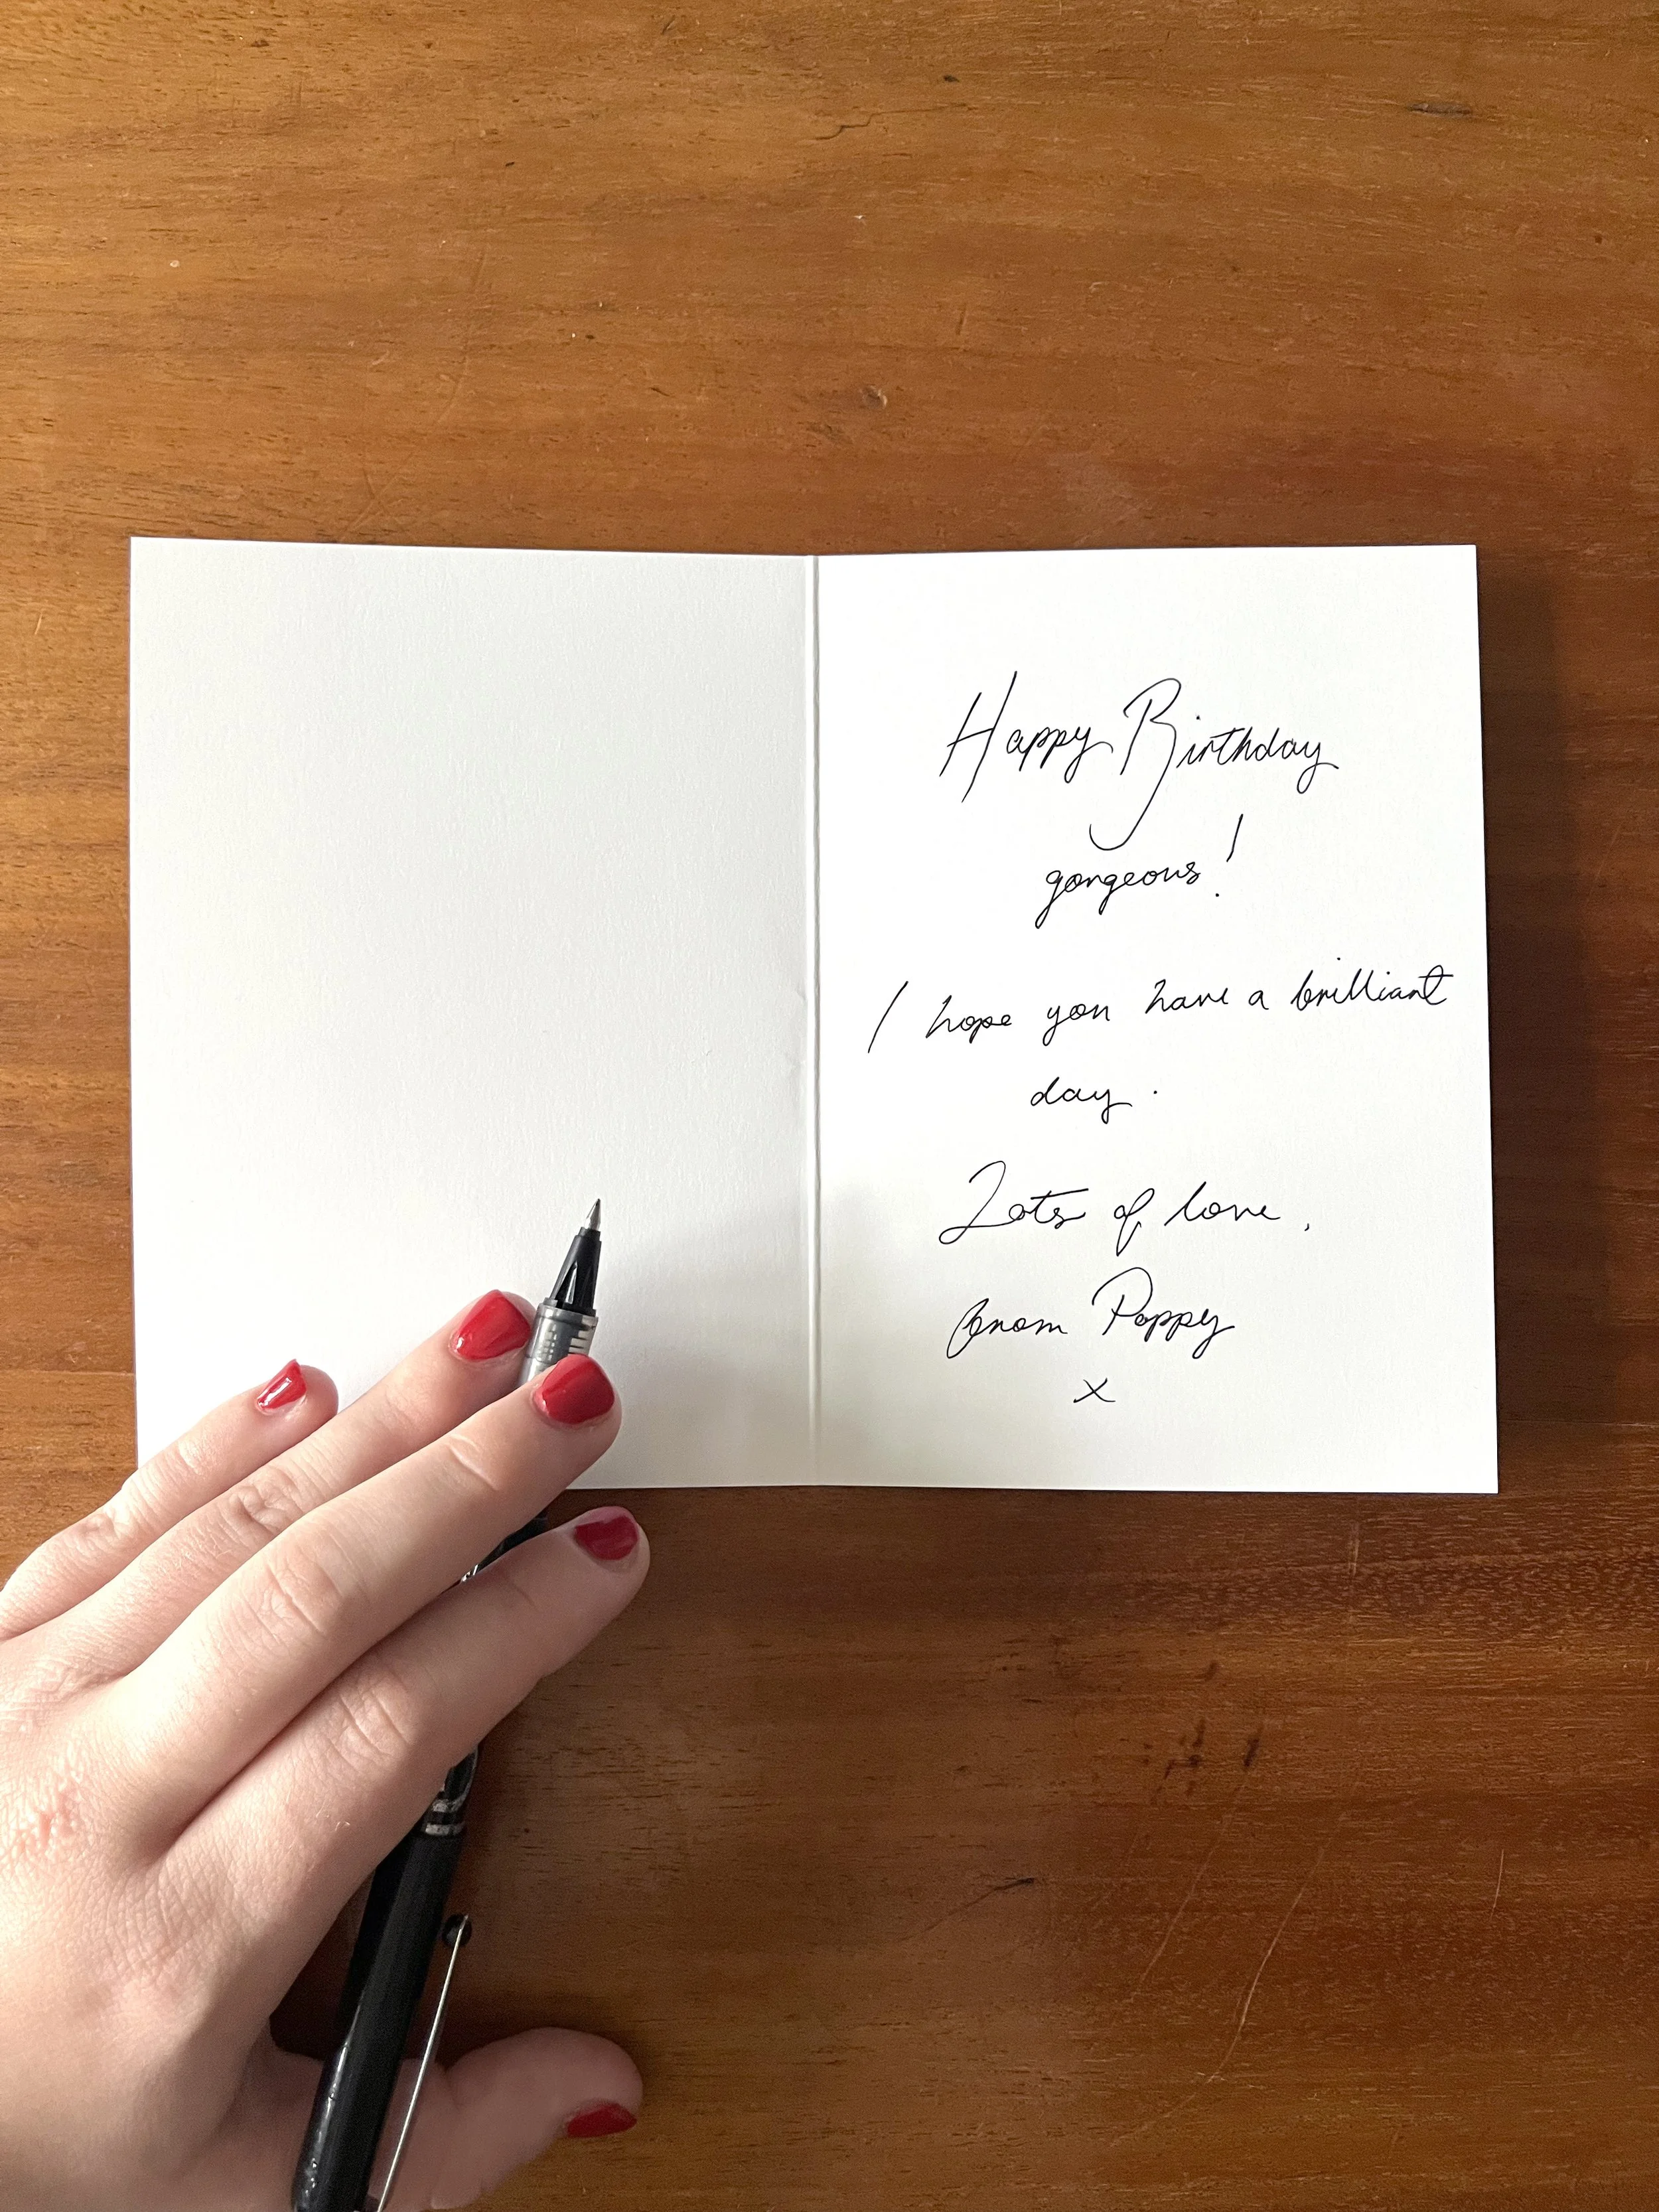 Happy Birthday
gorgeous!
I hope you have a brilliant
day.
Lots of love,
from Poppy
x